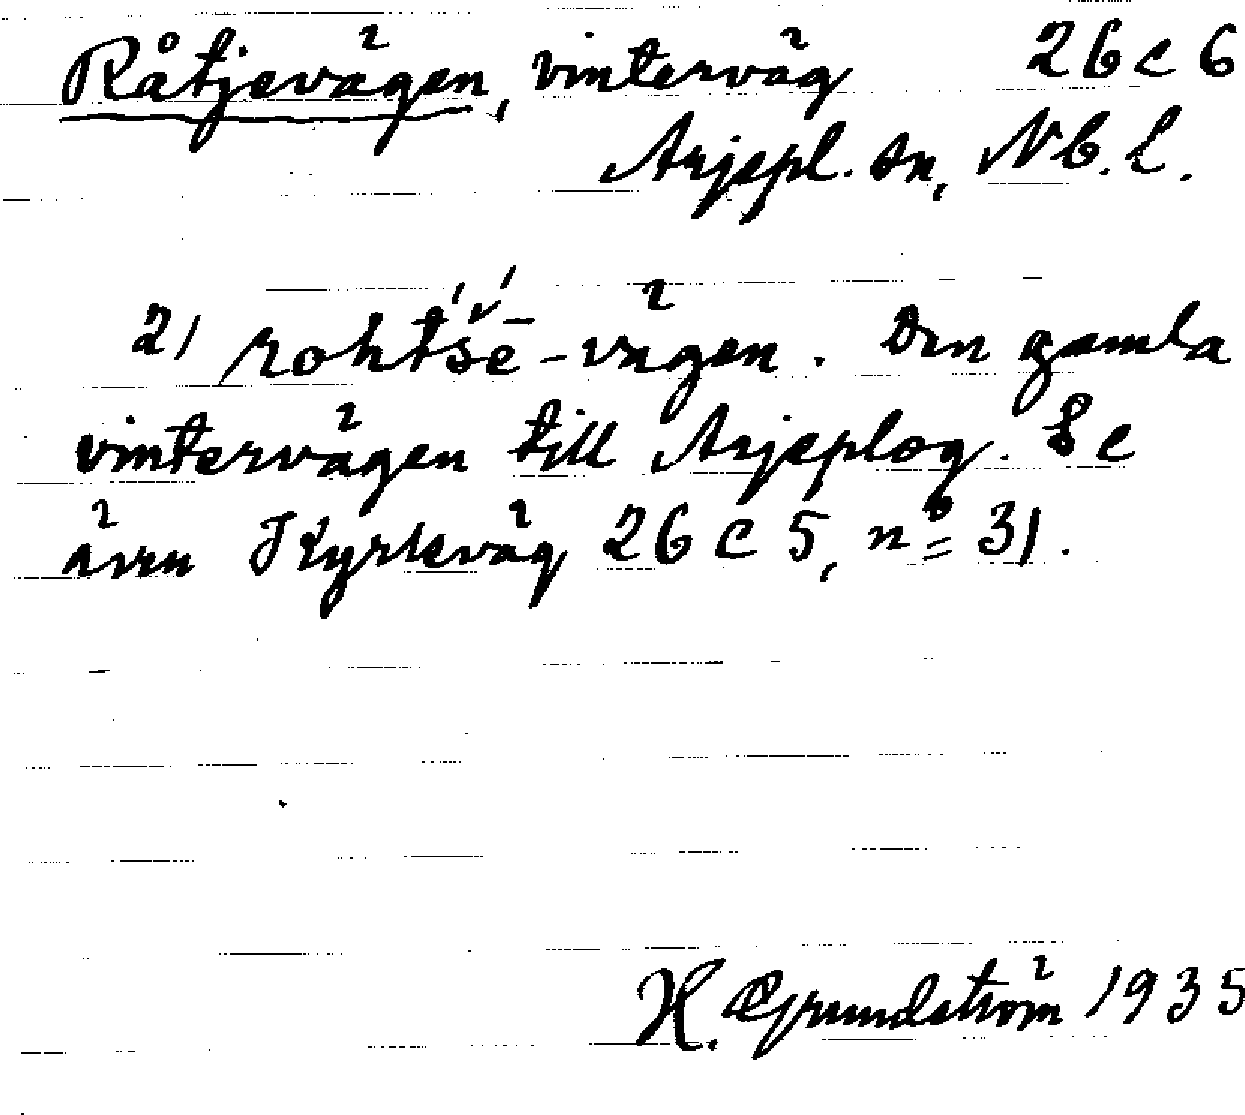 Råtjevägen, vinterväg 26 c 6
Arjepl. sn, Nb. L.
2) rohtśē-vägen. Den gamla
vintervägen till Arjeplog. Se
även Kyrkväg 26 C 5, nº 31.
H. Grundström 1935